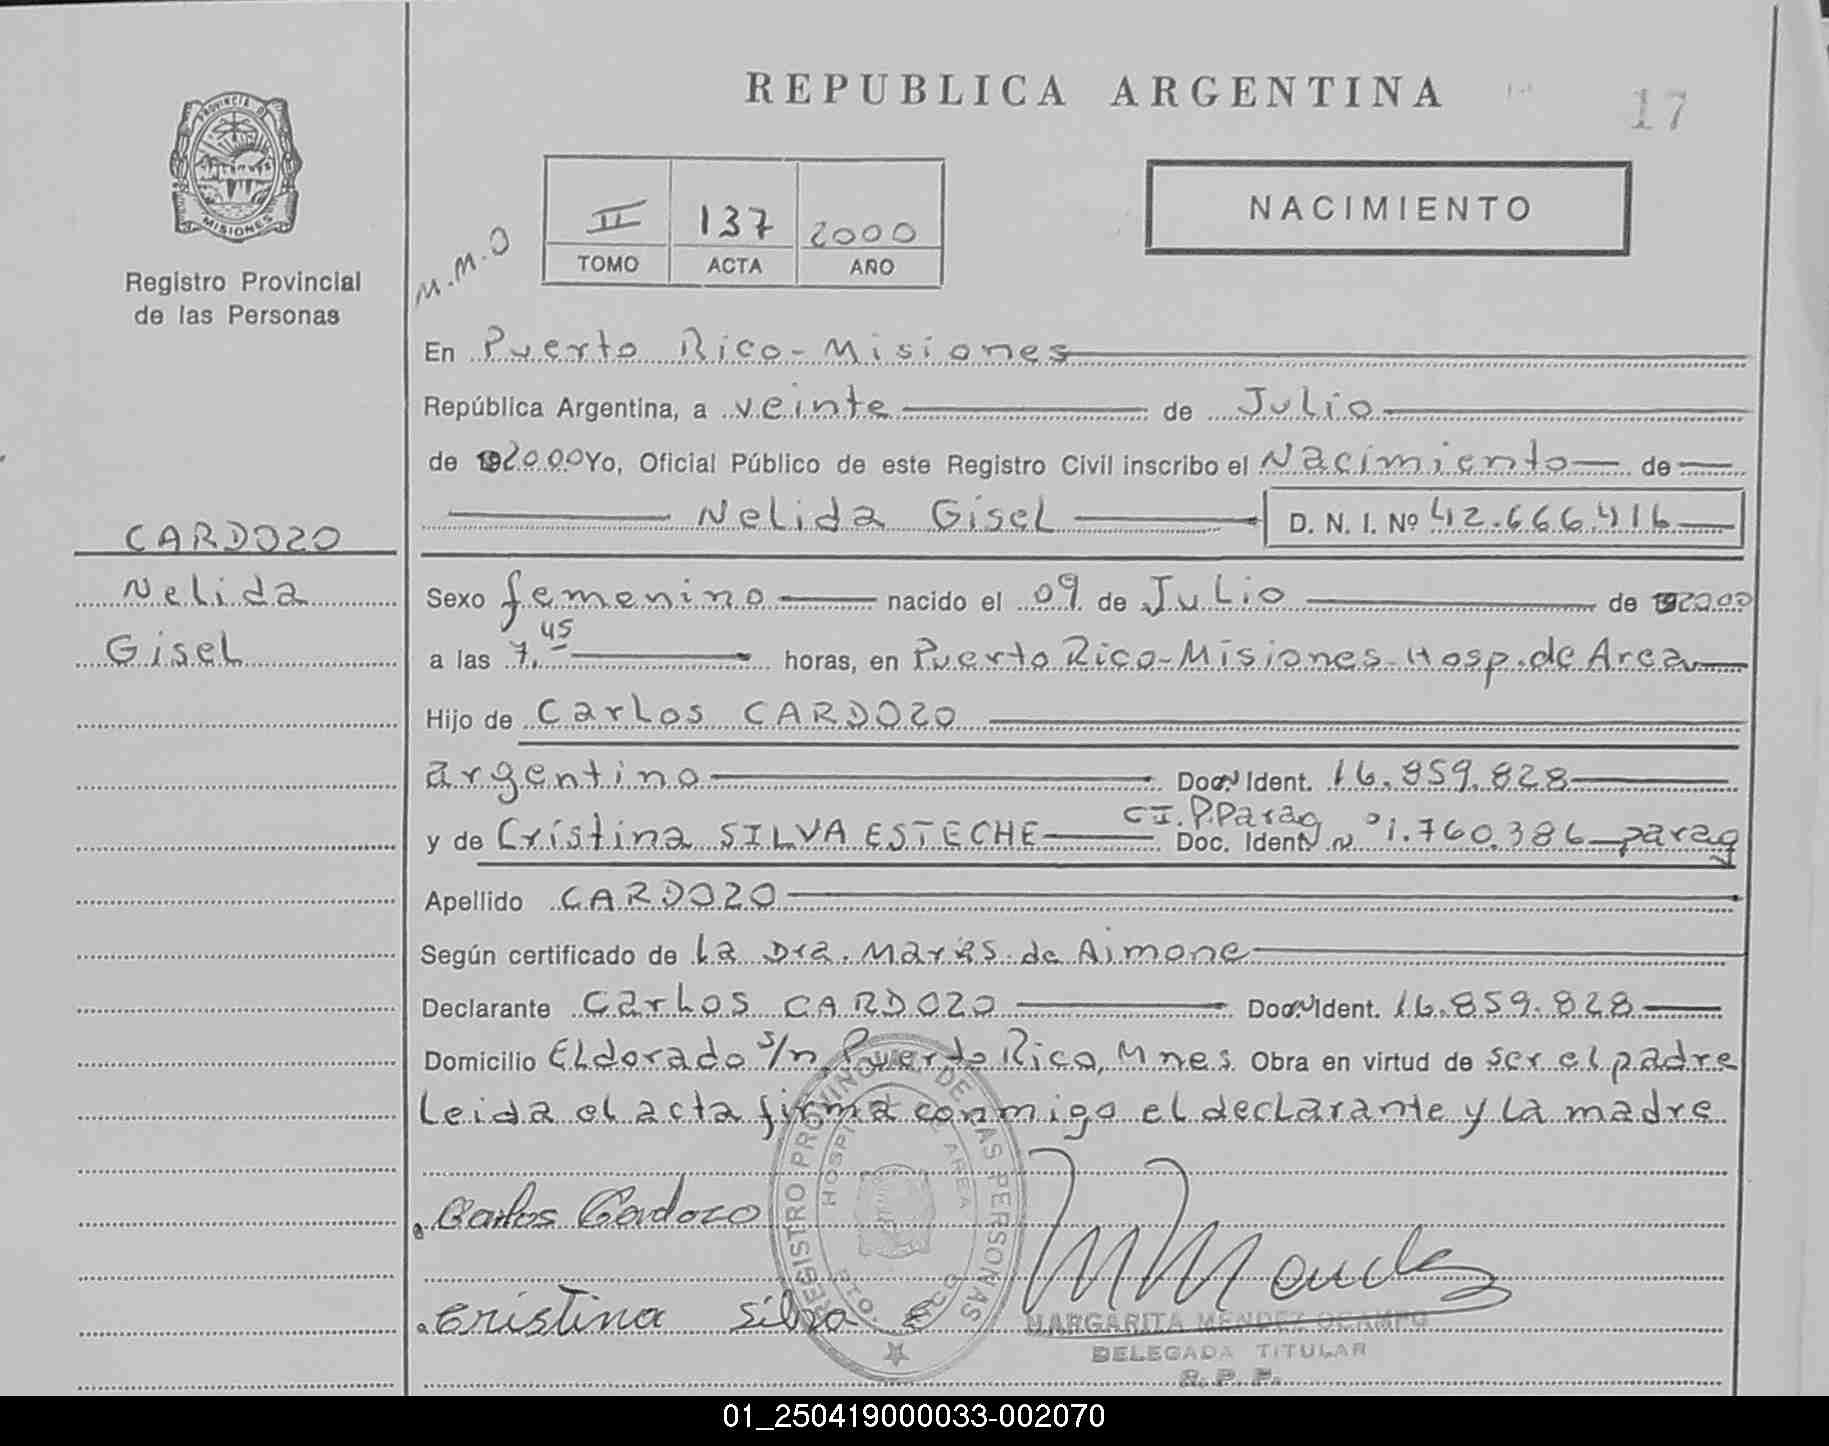 REPUBLICA ARGENTINA
17
PROVINCIA DE
MISIONES
Registro Provincial
de las Personas
M.M.O
II 137 2000
TOMO ACTA AÑO
NACIMIENTO
En Puerto Rico-Misiones
República Argentina, a veinte de Julio
de 192000 Yo, Oficial Público de este Registro Civil inscribo el Nacimiento de
Nelida Gisel D. N. I. Nº 42.666.416
CARDOZO
Nelida
Gisel
Sexo femenino nacido el 09 de Julio de 192000
a las 7,45 horas, en Puerto Rico-Misiones-Hosp.de Area
Hijo de Carlos CARDOZO
argentino Doc. Ident. 16.859.828
C.I.P.Parag
y de Cristina SILVA ESTECHE Doc. Ident. Nº 1.760.386 parag
Apellido CARDOZO
Según certificado de La Dra. de Aimone
Declarante Carlos CARDOZO Doc. Ident. 16.859.828
Domicilio ELdorado s/n, Puerto Rico, Mnes. Obra en virtud de ser el padre
Leida el acta firma conmigo el declarante y la madre
Carlos Cardozo
Cristina Silva E
REGISTRO PROVINCIAL DE LAS PERSONAS
HOSPITAL DE AREA
PTO. RICO
MARGARITA MENDEZ OCAMPO
DELEGADA TITULAR
R. P. P.
01_250419000033-002070